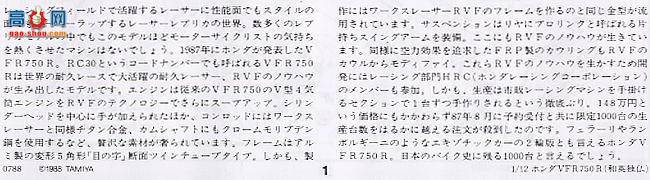 レーシングフィールドで活躍するレーサーに性能面でもスタイルの
面でもオーバーラップするレーサーレプリカの世界。数多くのレプ
リカの中でもこのモデルほどモーターサイクリストの気持ち
を熱くさせたマシンはないでしょう。1987年にホンダが発表したV
FR750R。RC30というコードナンバーでも呼ばれるVFR750
Rは世界の耐久レースで大活躍の耐久レーサー、RVFのノウハウ
が生み出したモデルです。エンジンは従来のVFR750のV型4気
筒エンジンをRVFのテクノロジーでさらにスープアップ。シリン
ダーヘッドを中心に手が加えられたほか、コンロッドにはワークス
レーサーと同様チタン合金、カムシャフトにもクロームモリブデン
鋼を使用するなど、贅沢な素材が奢られています。フレームはアル
ミ製の変形5角形「目の字」断面ツインチューブタイプ。しかも、製
0788 ©1988 TAMIYA
作にはワークスレーサーRVFのフレームを作るのと同じ金型が流
用されています。サスペンションはリヤにプロリンクと呼ばれる片
持ちスイングアームを装備。ここにもRVFのノウハウが生きてい
ます。同様に空力効果を追求したFRP製のカウリングもRVFの
カウルからモディファイ。これらRVFのノウハウを生かすため開
発にはレーシング部門HRC(ホンダレーシングコーポレーション)
のメンバーも参加。しかも、生産は市販レーシングマシンを手掛け
るセクションで1台ずつ手作りされるという徹底ぶり。148万円と
いう価格にもかかわらず87年8月に予約受付と共に限定1000台の生
産台数をはるかに越える注文が殺到したのです。フェラーリやラン
ボルギーニのようなエキゾチックカーの2輪版とも言えるホンダV
FR750R。日本のバイク史に残る1000台と言えるでしょう。
1
1/12 ホンダVFR750R(和英独仏)